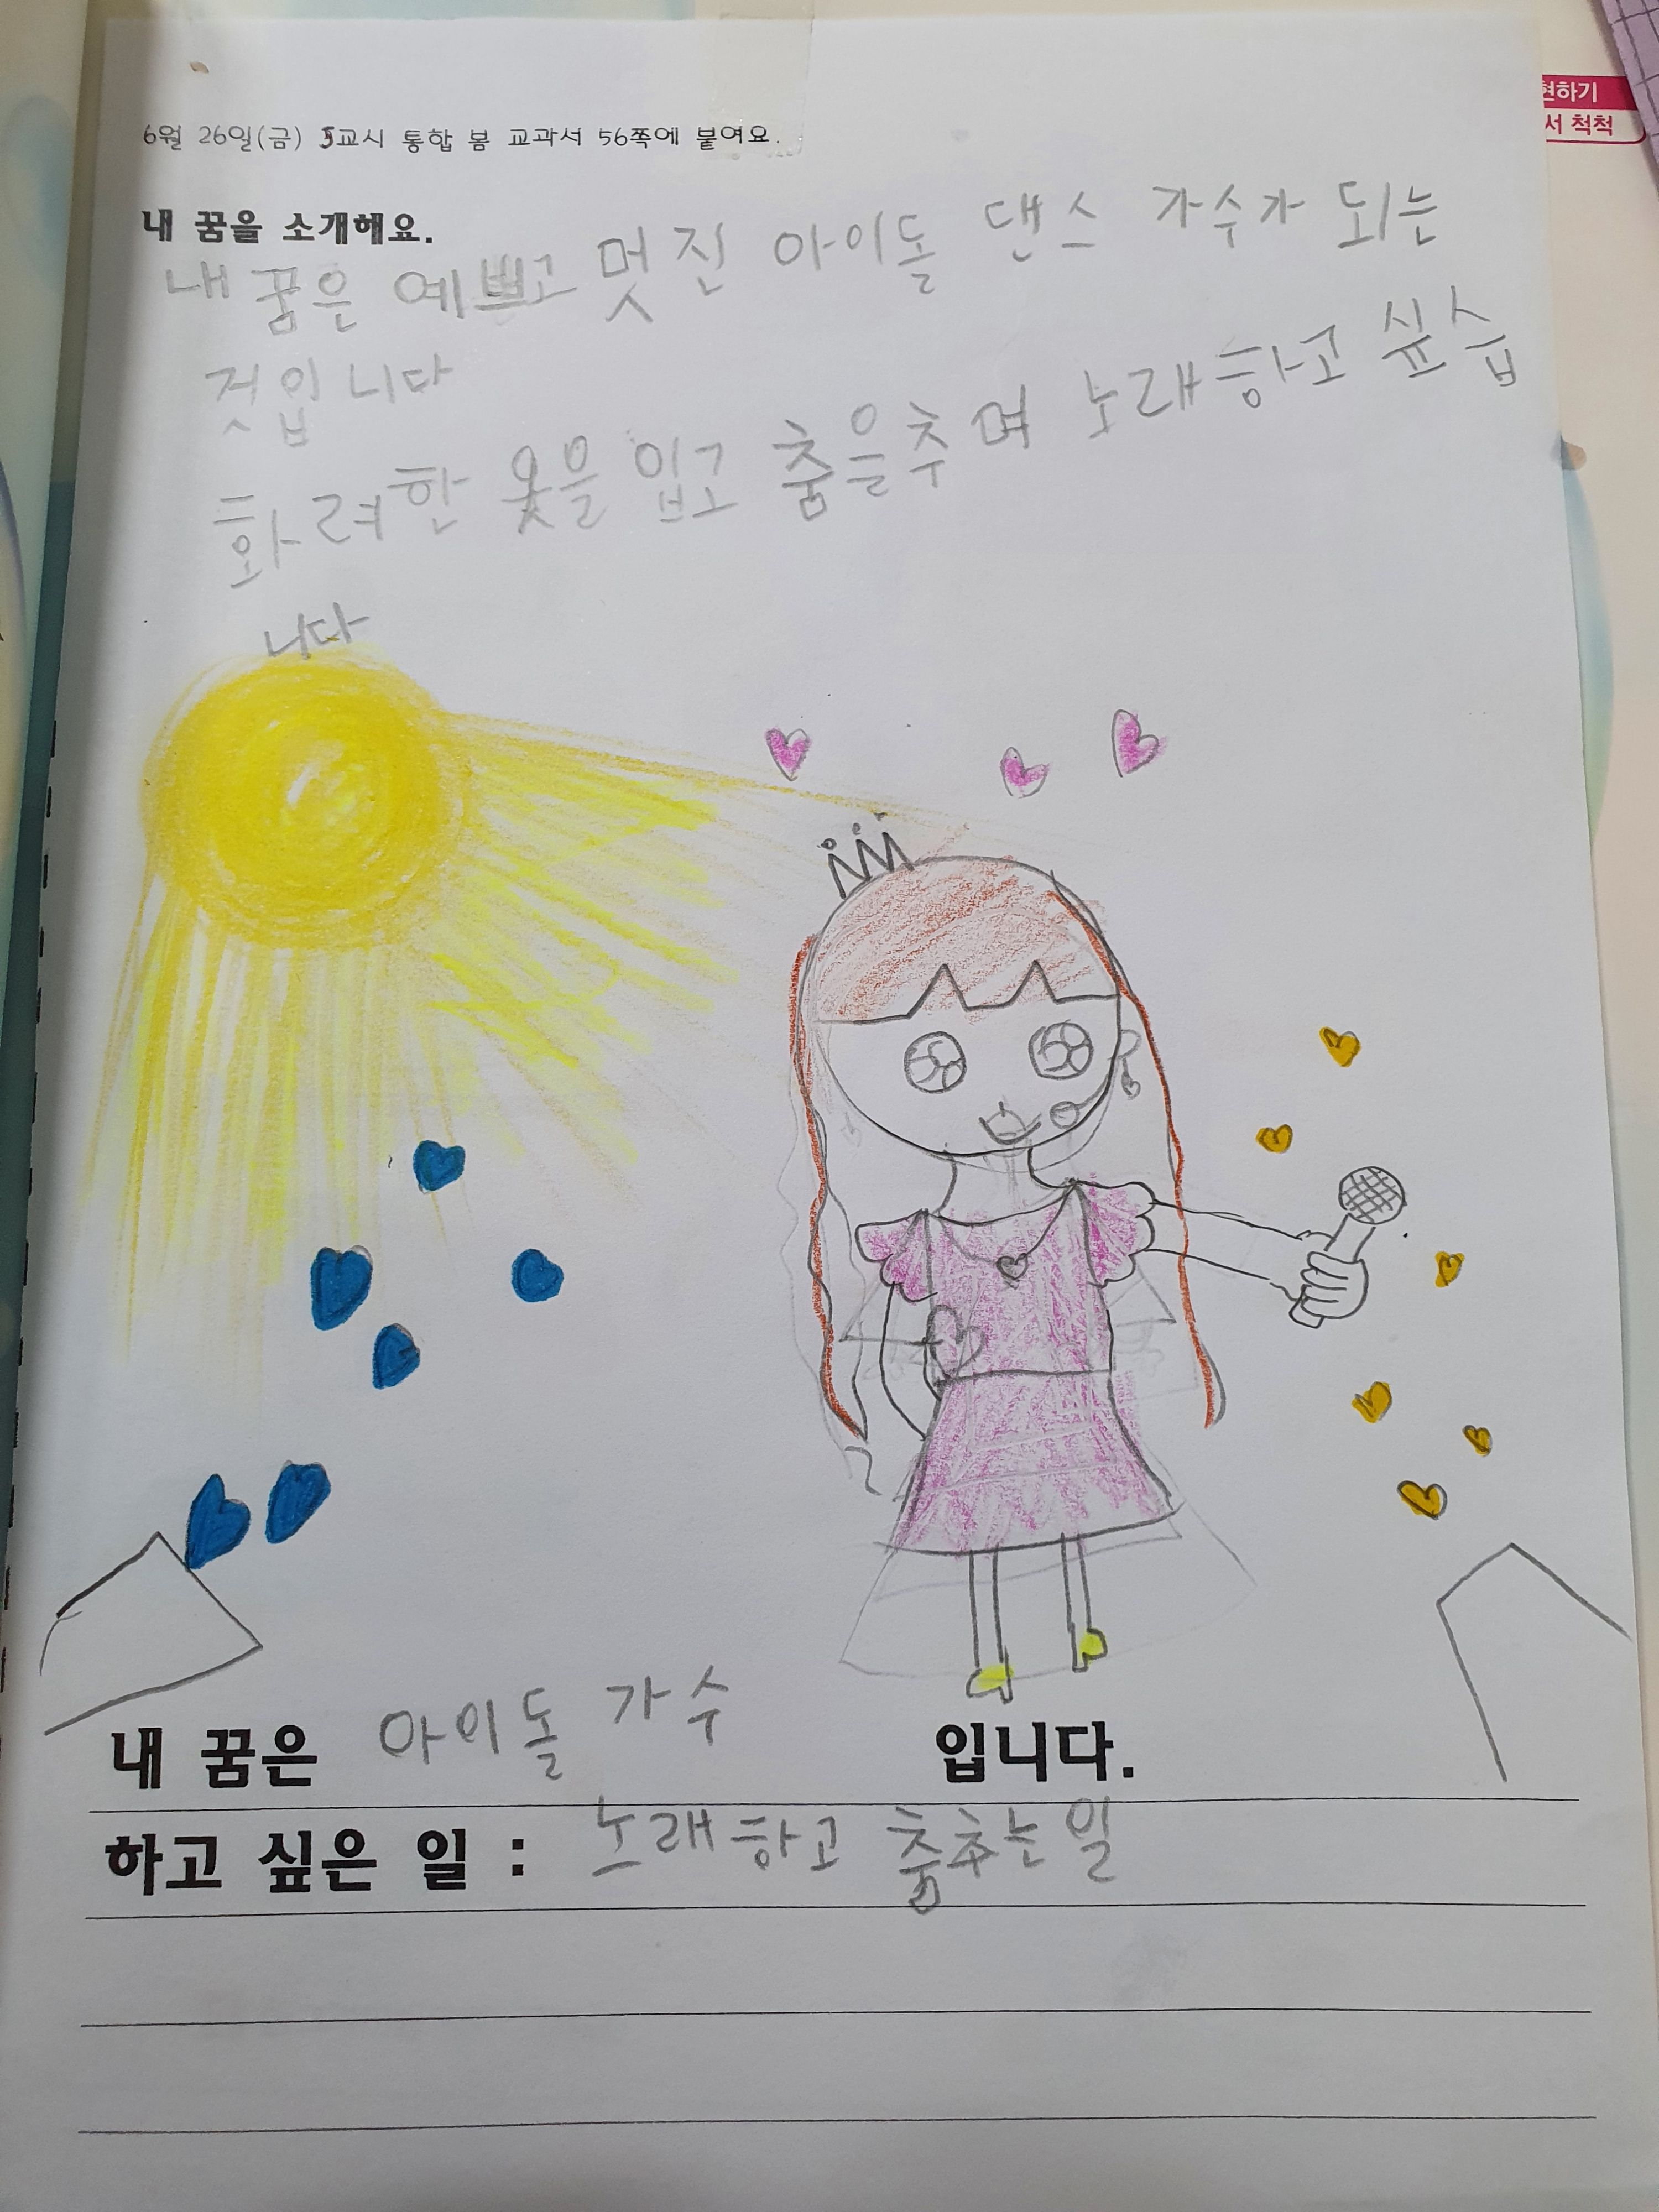 현하기
서 척척
6월 26일(금) 5교시 통합 봄 교과서 56쪽에 붙여요.
내 꿈을 소개해요.
내 꿈은 예쁘고 멋진 아이돌 댄스 가수가 되는
것입니다
화려한 옷을 입고 춤을추며 노래하고 싶습
니다
내 꿈은 아이돌 가수 입니다.
하고 싶은 일 : 노래하고 춤추는일